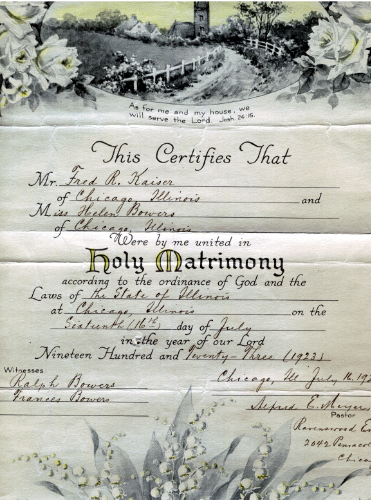 As for me and my house, we
will serve the Lord. Josh. 24:15.
This Certifies That
Mr. Fred R. Kaiser
of Chicago, Illinois and
Miss Helen Bowers
of Chicago, Illinois
Were by me united in
Holy Matrimony
according to the ordinance of God and the
Laws of the State of Illinois
at Chicago, Illinois on the
Sixteenth (16th) day of July
in the year of our Lord
Nineteen Hundred and Twenty-Three (1923)
Witnesses
Ralph Bowers
Frances Bowers
Chicago, Ill July 16, 192
Alfred E. Meyer
Pastor
Ravenswood
2042
Chica